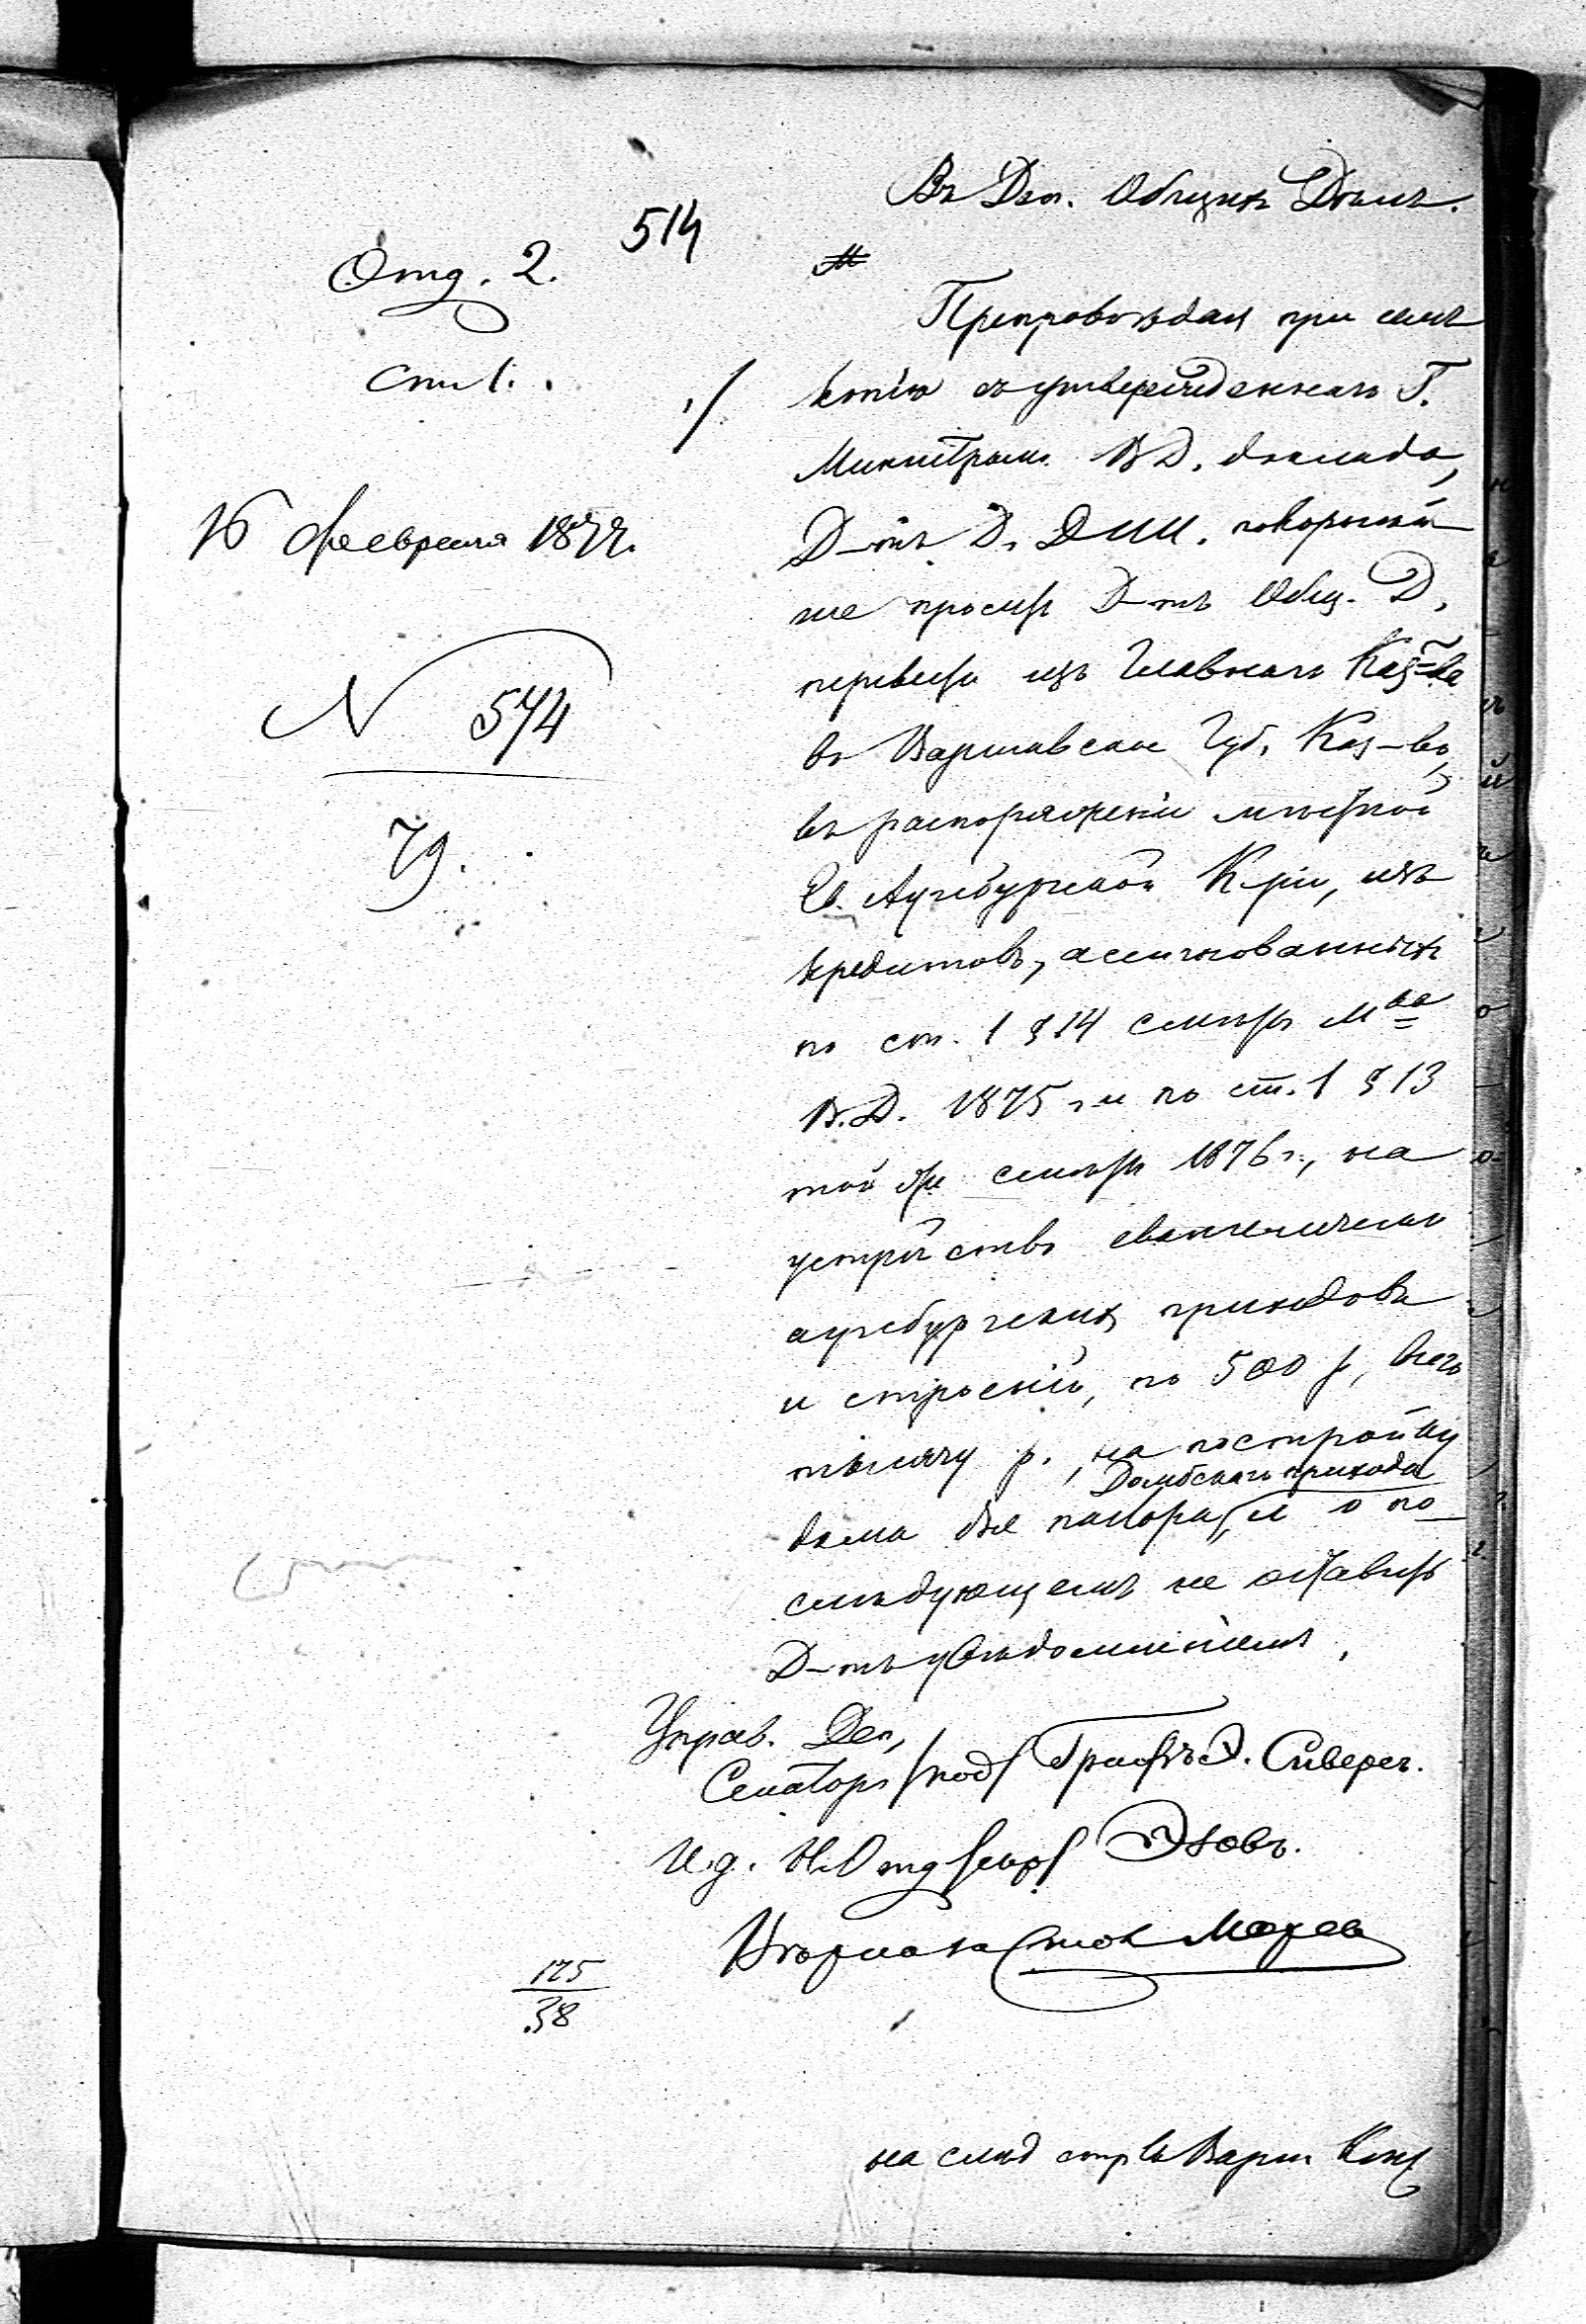 514
Отд. 2.
Ст. 1.
16 Февраля 1877.
N 574
79.
Въ Деп. Общихъ Дѣлъ.
Препровождая при семъ
копію съ утвержденнаго Г.
Министромъ В. Д. доклада,
Д-тъ Д. Д. И. И. покорнѣй
ше проситъ Д-тъ Общ. Д.
перевести изъ Главнаго Каз-ва
въ Варшавское Губ. Каз-во,
въ распоряженіе мѣстной
Ев. Аугсбургской К-ріи, изъ
кредитовъ, ассигнованныхъ
по ст. 1 § 14 смѣты М-ва
В. Д. 1875 г. и по ст. 1 § 13
той же смѣты 1876 г., на
устройство евангелическо
аугсбургскихъ приходовъ
и строеній, по 500 р., всего
тысячу р., на постройку
дома для пастора Домбскаго прихода, и о по
слѣдующемъ не оставить
Д-тъ увѣдомленіемъ.
Управ. Деп.,
Сенаторъ /под/ Графъ Э. Сиверсъ.
И. д. Н. Отд /скр/ Эзовъ.
Вѣрно: за Стол
125
38
на слѣд стр въ Варш Конс